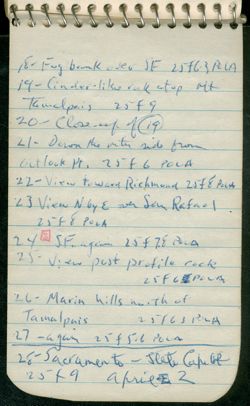 18- Fog bank over SF 25 f 6.3 POLA
19- Cinder-like rock atop Mt
Tamalpais 25 f 9
20- Close-up of 19
21- Down the water side from
outlook Mt. 25 f.6 POLA
22- View toward Richmond 25 f 8 POLA
23 View N by E over San Rafael
25 f 8 POLA
24 SF again 25 f 7.8 POLA
25- View past profile rock
25 f 6 POLA
26- Marin hills north of
Tamalpais 25 f 6.3 POLA
27- again 25 f 5.6 POLA
28- Sacramento - State Capitol
25 f 9 April 2